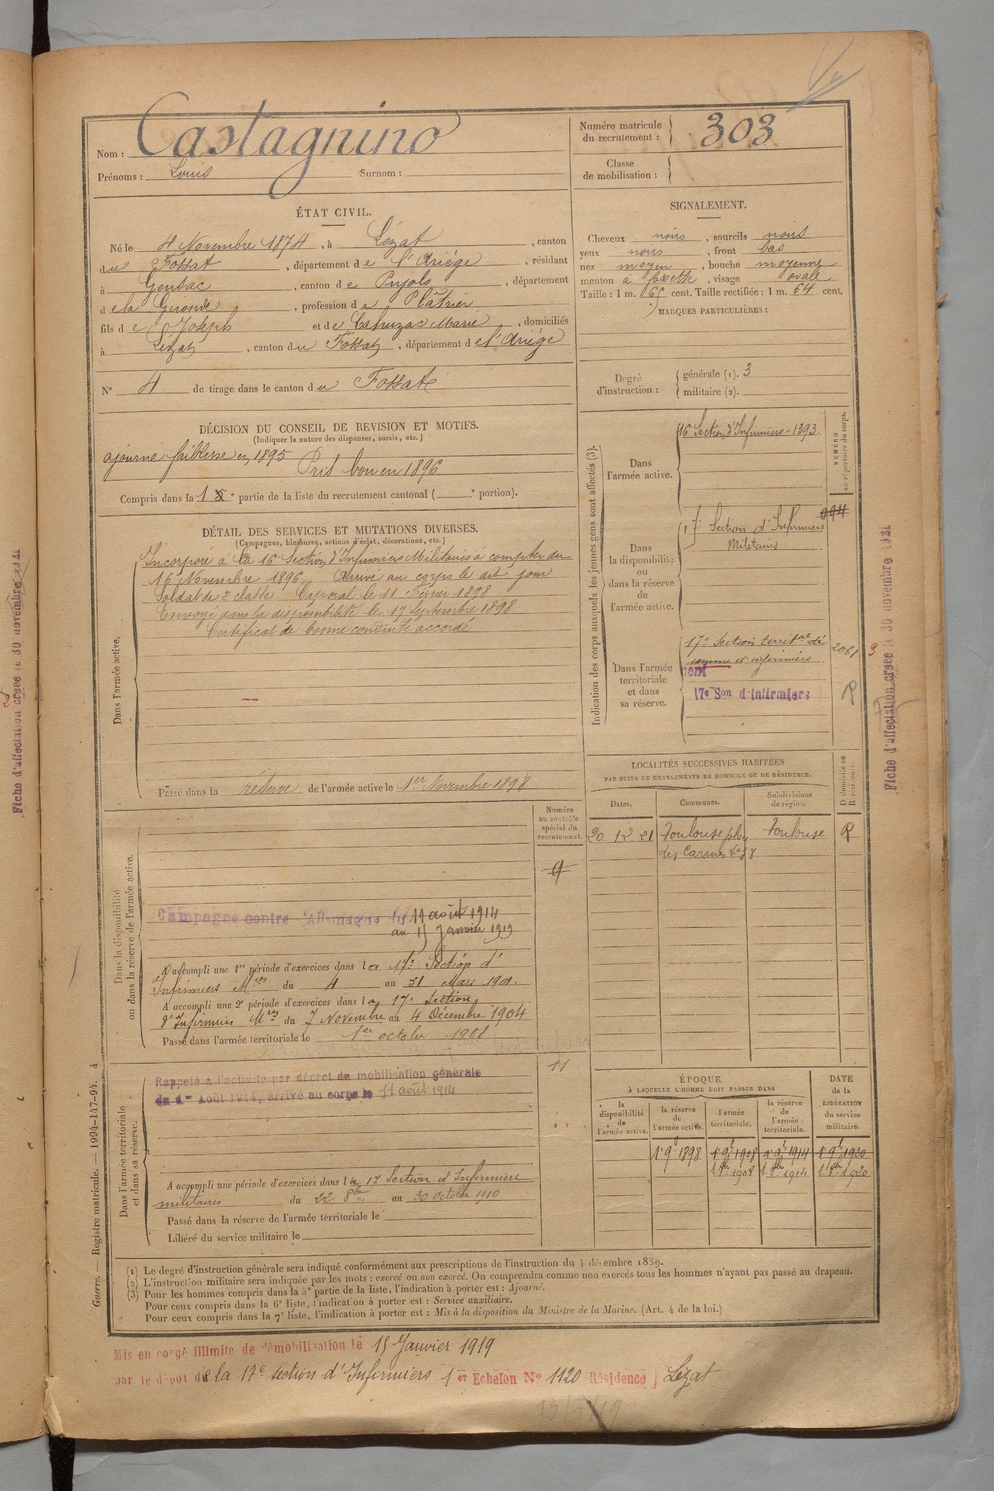 Nom : Castagnino
Prénoms : Louis Surnom :
Numéro matricule du recrutement : 303
Classe de mobilisation :
ÉTAT CIVIL.
Né le 4 Novembre 1874, à Lézat, canton
du Fossat, département de l'Ariège, résidant
à Gensac, canton de Pujols, département
de la Gironde, profession de Plâtrier
fils de Joseph et de Marie, domiciliés
à Lézat, canton du Fossat, département de l'Ariège
N° 4 de tirage dans le canton du Fossat
SIGNALEMENT.
Cheveux noirs, sourcils noirs
yeux noirs, front bas
nez moyen, bouche moyenne
menton à fossette, visage ovale
Taille : 1 m. cent. Taille rectifiée : 1 m. 64 cent.
MARQUES PARTICULIÈRES :
Degré d'instruction : générale (1). 3
militaire (2).
DÉCISION DU CONSEIL DE REVISION ET MOTIFS.
(Indiquer la nature des dispenses, sursis, etc.)
ajourné faiblesse en 1895
Pris bon en 1896
Compris dans la 1 e partie de la liste du recrutement cantonal ( e portion).
DÉTAIL DES SERVICES ET MUTATIONS DIVERSES.
(Campagnes, blessures, actions d'éclat, décorations, etc.)
Dans l'armée active.
Incorporé à la 16e Section d'Infirmiers Militaires à compter du
16 Novembre 1896. Arrivé au corps le dit jour
Soldat de 2 classe. Caporal le 11 Février 1898
Envoyé dans la disponibilité le 17 Septembre 1898
Certificat de bonne conduite accordé
Passé dans la réserve de l'armée active le 1er Novembre 1898
Indication des corps auxquels les jeunes gens sont affectés (3).
NUMÉRO au répertoire du corps.
Dans l'armée active.
16 Section d'Infirmiers - 1393
Dans la disponibilité ou dans la réserve de l'armée active.
17 Section d'Infirmiers
Militaires
944
Dans l'armée territoriale et dans sa réserve.
17e Section territale de
d'infirmiers
2061
17e Son d'Infirmiers
R
Fiche d'affectation créée le 30 novembre 1921
Fiche d'affectation créée le 30 novembre 1921
LOCALITÉS SUCCESSIVES HABITÉES
PAR SUITE DE CHANGEMENTS DE DOMICILE OU DE RÉSIDENCE.
Dates. Communes. Subdivisions de région. D domicile ou R résidence.
20 12 21 Toulouse place Toulouse R
des Carmes No 38
Numéro au contrôle spécial du recrutement.
9
Dans la disponibilité ou dans la réserve de l'armée active.
Campagne contre l'Allemagne du 11 août 1914
au 15 Janvier 1919
A accompli une 1re période d'exercices dans la 17e Section d'
Infirmiers Mres du 4 au 31 Mars 1901.
A accompli une 2e période d'exercices dans la 17e Section
d'Infirmiers Mres du 7 Novembre au 4 Décembre 1904
Passé dans l'armée territoriale le 1er octobre 1908
11
Dans l'armée territoriale et dans sa réserve.
Rappelé à l'activité par décret de mobilisation générale
du 1er Août 1914, arrivé au corps le 11 août 1914
A accompli une période d'exercices dans la 17 Section d'Infirmiers
militaires du 22 8bre au 30 octobre 1910
Passé dans la réserve de l'armée territoriale le
Libéré du service militaire le
ÉPOQUE
À LAQUELLE L'HOMME DOIT PASSER DANS
DATE de la LIBÉRATION du service militaire.
la disponibilité de l'armée active. la réserve de l'armée active. l'armée territoriale. la réserve de l'armée territoriale.
1 9b 1898 1 9b 1908 1 9b 1914 1 9b 1920
1908 1914 1920
(1) Le degré d'instruction générale sera indiqué conformément aux prescriptions de l'instruction du 4 décembre 1889.
(2) L'instruction militaire sera indiquée par les mots : exercé ou non exercé. On comprendra comme non exercés tous les hommes n'ayant pas passé au drapeau.
(3) Pour les hommes compris dans la 5e partie de la liste, l'indication à porter est : Ajourné.
Pour ceux compris dans la 6e liste, l'indication à porter est : Service auxiliaire.
Pour ceux compris dans la 7e liste, l'indication à porter est : Mis à la disposition du Ministre de la Marine. (Art. 4 de la loi.)
Guerre. — Registre matricule. — 1994-147-94. 4
Mis en congé illimité de démobilisation le 15 Janvier 1919
par le dépôt de la 17e section d'Infirmiers 1er Echelon No 1120 Résidence Lézat